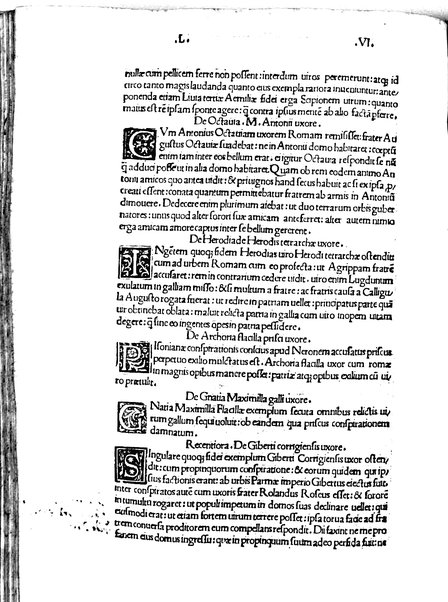 .L. .VI.
nullæ cum pellicem ferre non possent: interdum uiros peremerunt: atq; id
circo tanto magis laudanda quanto eius exempla rariora inueniuntur: ante/
ponenda etiam Liuia tertiæ Aemiliæ fidei erga Scipionem uirum: quanto
maius est rem ipsam sponte agere: q̃ contra ipsius mentem ab alio factã pferre,
De Octauia . M. Antonii uxore.
CVm Antonius Octauiam uxorem Romam remisisset: frater Au
gustus Octauiæ suadebat: ne in Antonii domo habitaret: cœptũ
enim iam inter eos bellum erat. erigitur Octauia respondit se nũ
q̃ adduci posset in alia domo habitaret. Quam ob rem eodem animo An
tonii amicos quo antea uidit: & priuignos haud secus habuit ac si ex ipsa p/
creati essent: conata quantum permittebatur fratrem ab armis in Antoniũ
dimouere. Dedecere enim plurimum aiebat: ut duo terrarum orbis guber
natores: unus quod alter sororī suæ amicam anteferret: alter autem nimio
erga amicam amore captus inter se bellum gererent.
De Herodiade Herodis tetrarchæ uxore.
INgẽtem quoq; fidem Herodias uiro Herodi tetrarchæ ostendit:
cum ad urbem Romam cum eo profecta: ut Agrippam fratrẽ
accusaret: rem in contrarium cedere uidit. uiro enim Lugdunum
exulatum in galliam misso: & si multum a fratre: ac fratris causa a Calligu
la Augusto rogata fuerat: ut redire in patriam uellet: principatus parte quã
uir obtinebat oblata: maluit relicta patria in gallia cum uiro inopem uitam
degere: q̃ sine eo ingentes opes in patria possidere.
De Archoria flacilla prisci uxore.
PIsonianæ conspirationis conscius apud Neronem accusatus priscus
perpetuo exilio mulctatus est. Archoria flacilla uxor cum romæ
in magnis opibus manere posset: patriæ atq; opibus exilium cũ ui/
ro prætulit.
De Gnatia Maximilla galli uxore.
GNatia Maximilla Flacillæ exemplum secuta omnibus relictis ui
rum gallum sequi uoluit: ob eandem qua priscus conspirationem
damnatum.
Recentiora . De Giberti corrigiensis uxore.
SIngulare quoq; fidei exemplum Giberti Corrigiensis uxor osten/
dit: cum propinquorum conspiratione: & eorum quidem qui ip/
sius factionis erant: ab urbis Parmæ imperio Gibertus eiectus fuit
inter conspiratos autẽ cum uxoris frater Rolandus Roscus esset: & sororẽ
in tumultu rogaret: ut populi impetum in domos suas declinare uellet: qui
eiusmodi erat: ut etiam fortem uirum terrere posset: ipsa torua facie ad fra
trem conuersa proditorem eum compellans respondit. Dii faxint ne me pro
fanem eius domus ingressu: quæ in propinquum suum adeo perfida fuit: ne